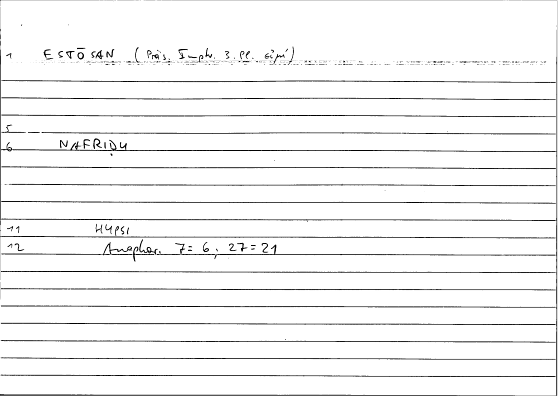 1 ESTŌSAN (Präs. Imptv. 3. Pl. εἰμί)
5
6 NAFRIḌU
11 HYPSI
12 Anaphor. 7=6; 27=21